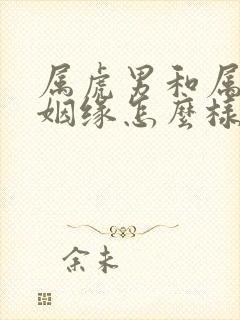 属虎男和属
姻缘怎麽样
余未